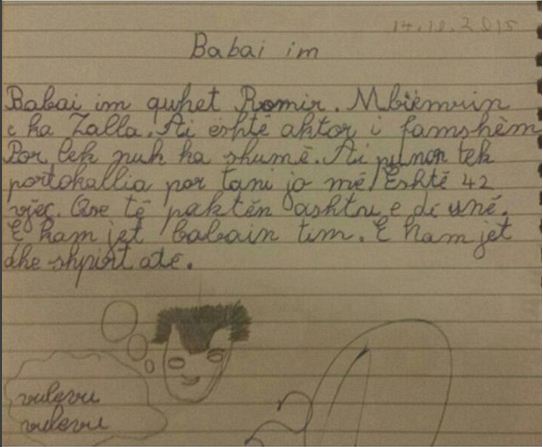 14.10.2015
Babai im
Babai im quhet Romir. Mbiemrin
e ka Zalla. Ai është aktor i famshëm
Por lek nuk ka shumë. Ai punon tek
portokallia por tani jo më. Është 42
vjeç. Ose të paktën ashtu e di unë.
E kam jet babain tim. E kam jet
dhe shpirt atë.
vulevu
vulevu